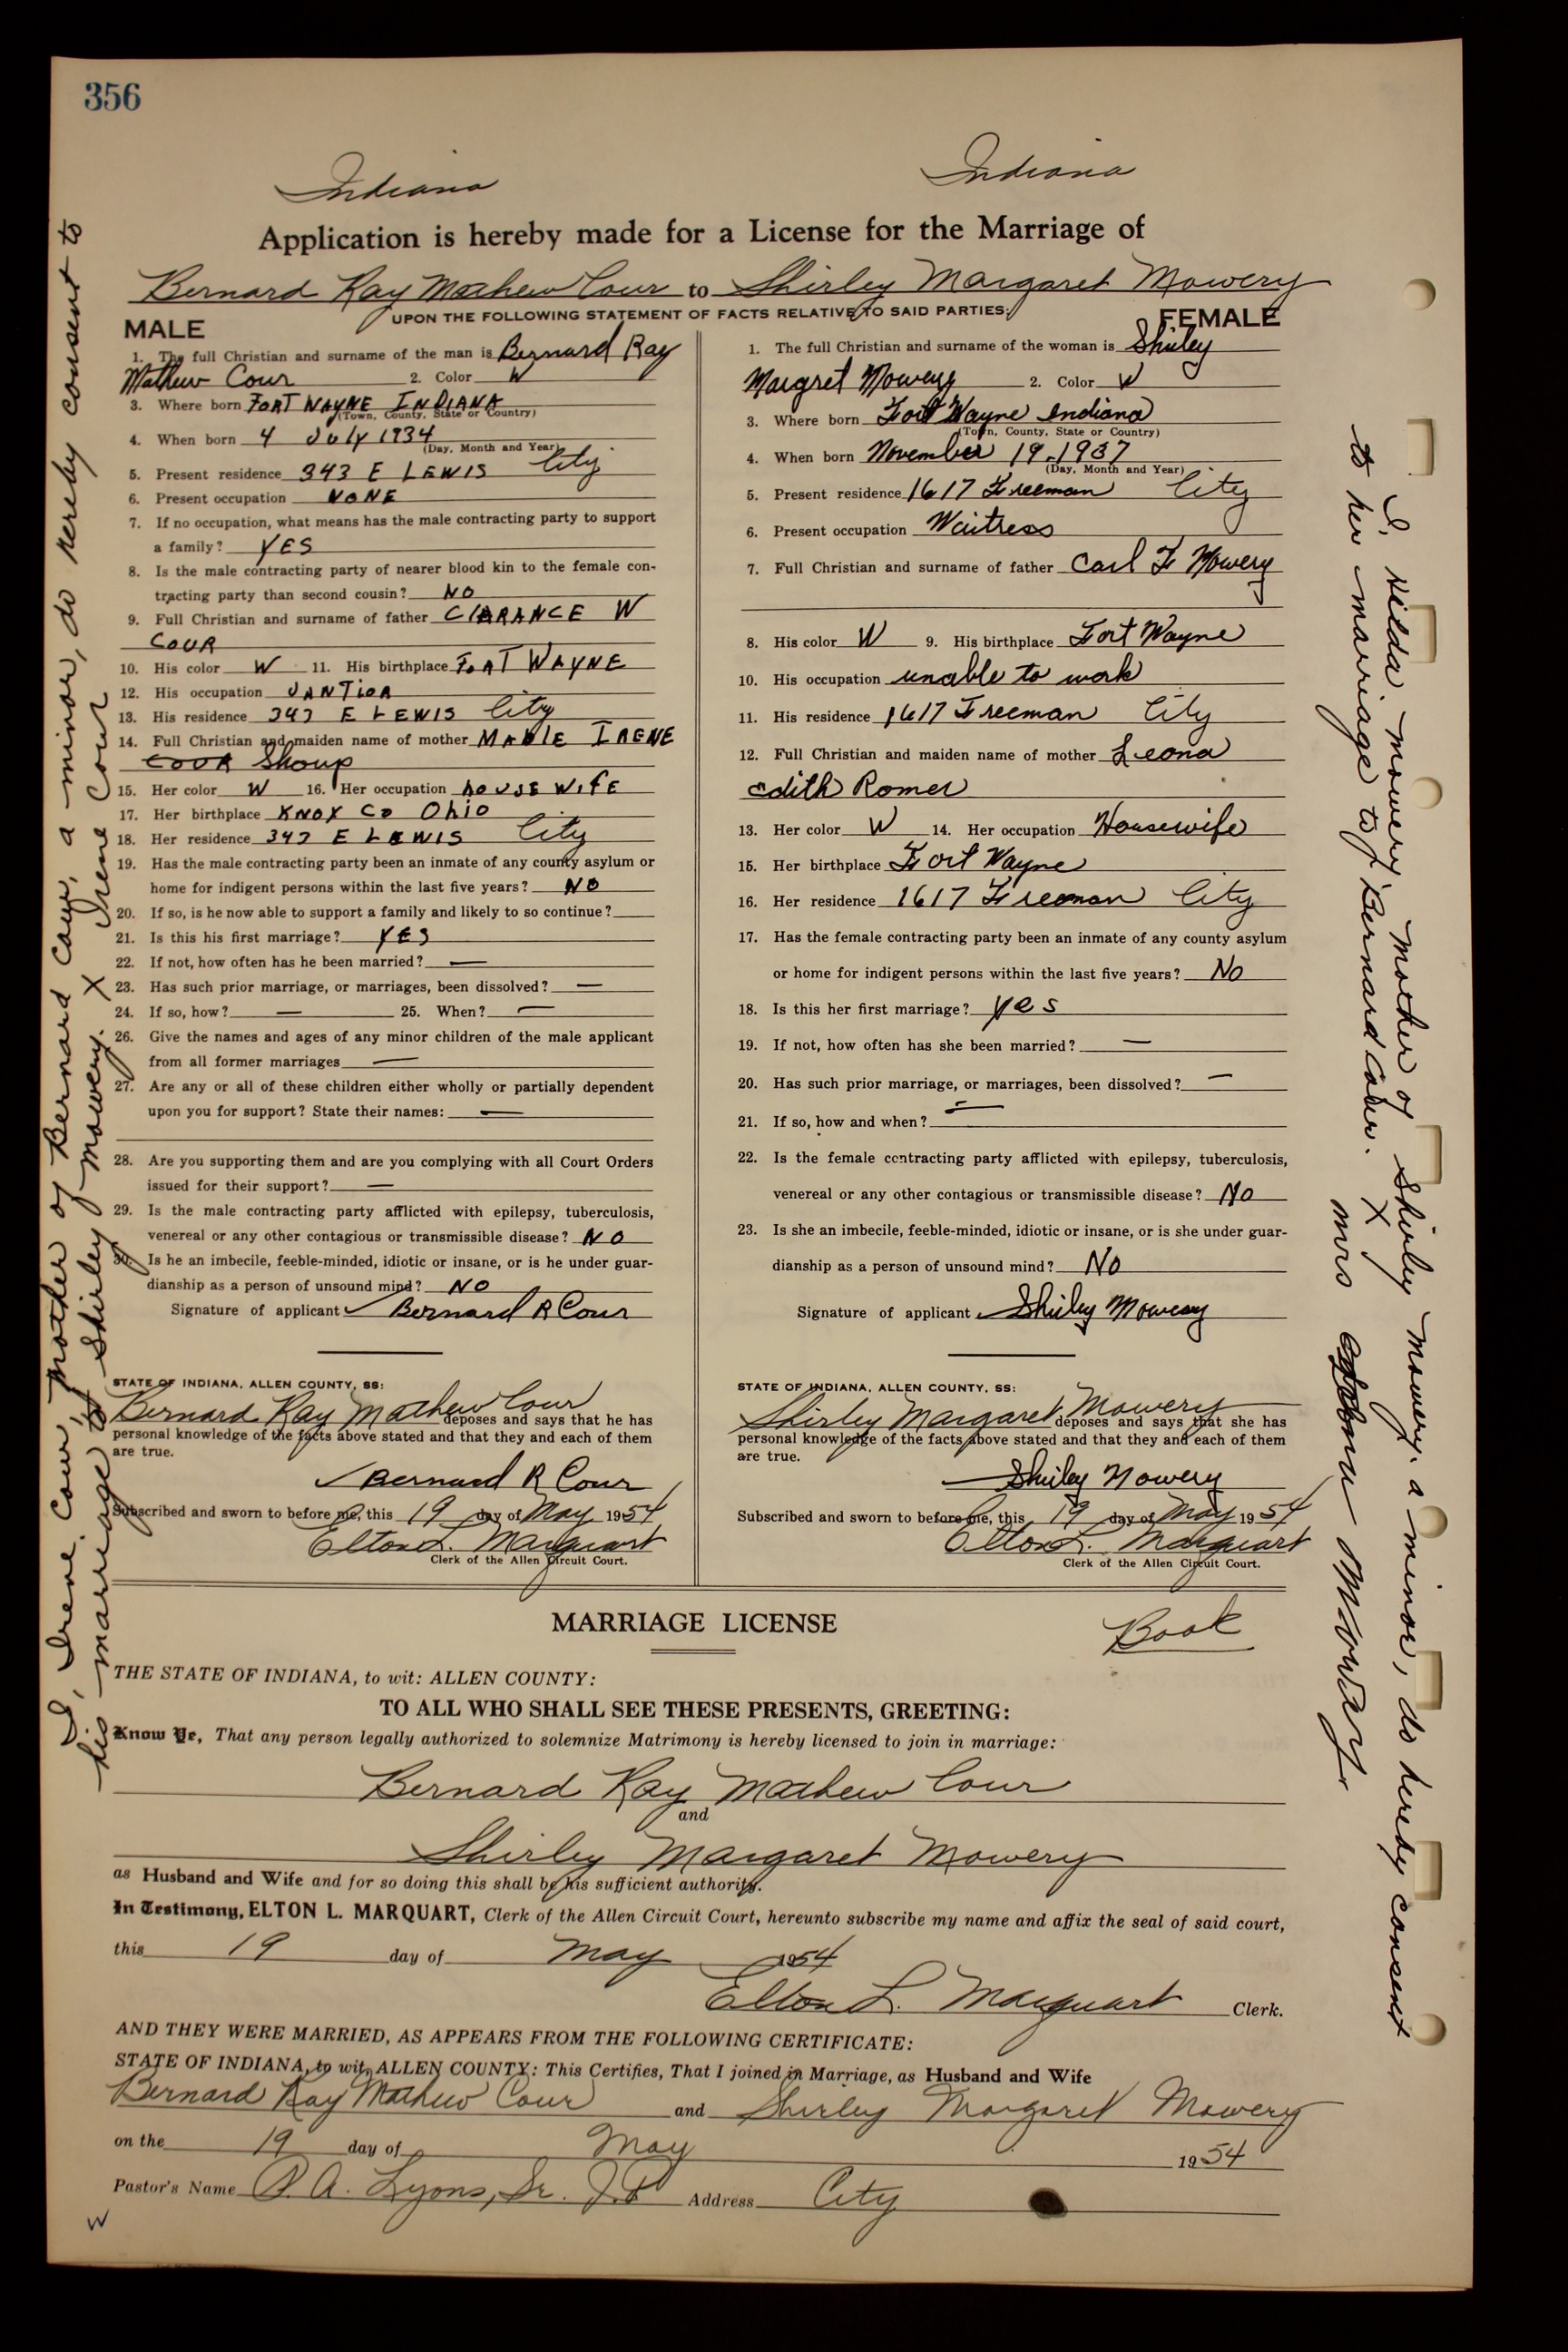 356
Indiana
Indiana
Application is hereby made for a License for the Marriage of
Bernard Ray Mathew Cour to Shirley Margaret Mowery
UPON THE FOLLOWING STATEMENT OF FACTS RELATIVE TO SAID PARTIES:
MALE
1. The full Christian and surname of the man is Bernard Ray
Mathew Cour 2. Color W
3. Where born FORT WAYNE INDIANA
(Town, County, State or Country)
4. When born 4 July 1934
(Day, Month and Year)
5. Present residence 343 E LEWIS City
6. Present occupation NONE
7. If no occupation, what means has the male contracting party to support
a family? YES
8. Is the male contracting party of nearer blood kin to the female con-
tracting party than second cousin? NO
9. Full Christian and surname of father ClARANCE W
COUR
10. His color W 11. His birthplace FORT WAYNE
12. His occupation JANTIOR
13. His residence 343 E LEWIS City
14. Full Christian and maiden name of mother MABlE IRENE
COUR Shoup
15. Her color W 16. Her occupation hOUSE WIFE
17. Her birthplace KNOX CO OhiO
18. Her residence 343 E LEWIS City
19. Has the male contracting party been an inmate of any county asylum or
home for indigent persons within the last five years? NO
20. If so, is he now able to support a family and likely to so continue?
21. Is this his first marriage? YES
22. If not, how often has he been married? —
23. Has such prior marriage, or marriages, been dissolved? —
24. If so, how? — 25. When? —
26. Give the names and ages of any minor children of the male applicant
from all former marriages —
27. Are any or all of these children either wholly or partially dependent
upon you for support? State their names: —
28. Are you supporting them and are you complying with all Court Orders
issued for their support? —
29. Is the male contracting party afflicted with epilepsy, tuberculosis,
venereal or any other contagious or transmissible disease? NO
30. Is he an imbecile, feeble-minded, idiotic or insane, or is he under guar-
dianship as a person of unsound mind? NO
Signature of applicant Bernard R Cour
STATE OF INDIANA, ALLEN COUNTY, SS:
Bernard Ray Mathew Cour deposes and says that he has
personal knowledge of the facts above stated and that they and each of them
are true.
Bernard R Cour
Subscribed and sworn to before me, this 19 day of May 1954
Elton L. Marquart
Clerk of the Allen Circuit Court.
FEMALE
1. The full Christian and surname of the woman is Shirley
Margret Mowery 2. Color W
3. Where born Fort Wayne Indiana
(Town, County, State or Country)
4. When born November 19, 1937
(Day, Month and Year)
5. Present residence 1617 Freeman City
6. Present occupation Waitress
7. Full Christian and surname of father Carl F Mowery
8. His color W 9. His birthplace Fort Wayne
10. His occupation unable to work
11. His residence 1617 Freeman City
12. Full Christian and maiden name of mother Leona
Edith Romer
13. Her color W 14. Her occupation Housewife
15. Her birthplace Fort Wayne
16. Her residence 1617 Freeman City
17. Has the female contracting party been an inmate of any county asylum
or home for indigent persons within the last five years? No
18. Is this her first marriage? Yes
19. If not, how often has she been married? —
20. Has such prior marriage, or marriages, been dissolved? —
21. If so, how and when? —
22. Is the female contracting party afflicted with epilepsy, tuberculosis,
venereal or any other contagious or transmissible disease? No
23. Is she an imbecile, feeble-minded, idiotic or insane, or is she under guar-
dianship as a person of unsound mind? No
Signature of applicant Shirley Mowery
STATE OF INDIANA, ALLEN COUNTY, SS:
Shirley Margaret Mowery deposes and says that she has
personal knowledge of the facts above stated and that they and each of them
are true.
Shirley Mowery
Subscribed and sworn to before me, this 19 day of May 1954
Elton L. Marquart
Clerk of the Allen Circuit Court.
I, Irene Cour, mother of Bernard Cour, a minor, do hereby consent to
his marriage to Shirley Mowery. X Irene Cour
I, Hilda Mowery, mother of Shirley Mowery, a minor, do hereby consent
to her marriage to Bernard Cour. X
Mrs Mowery
MARRIAGE LICENSE
Book
THE STATE OF INDIANA, to wit: ALLEN COUNTY:
TO ALL WHO SHALL SEE THESE PRESENTS, GREETING:
Know Ye, That any person legally authorized to solemnize Matrimony is hereby licensed to join in marriage:
Bernard Ray Mathew Cour
and
Shirley Margaret Mowery
as Husband and Wife and for so doing this shall be his sufficient authority.
In Testimony, ELTON L. MARQUART, Clerk of the Allen Circuit Court, hereunto subscribe my name and affix the seal of said court,
this 19 day of May 1954
Elton L. Marquart Clerk.
AND THEY WERE MARRIED, AS APPEARS FROM THE FOLLOWING CERTIFICATE:
STATE OF INDIANA, to wit, ALLEN COUNTY: This Certifies, That I joined in Marriage, as Husband and Wife
Bernard Ray Mathew Cour and Shirley Margaret Mowery
on the 19 day of May 1954
Pastor's Name P. A. Lyons, Sr. J.P Address City
W